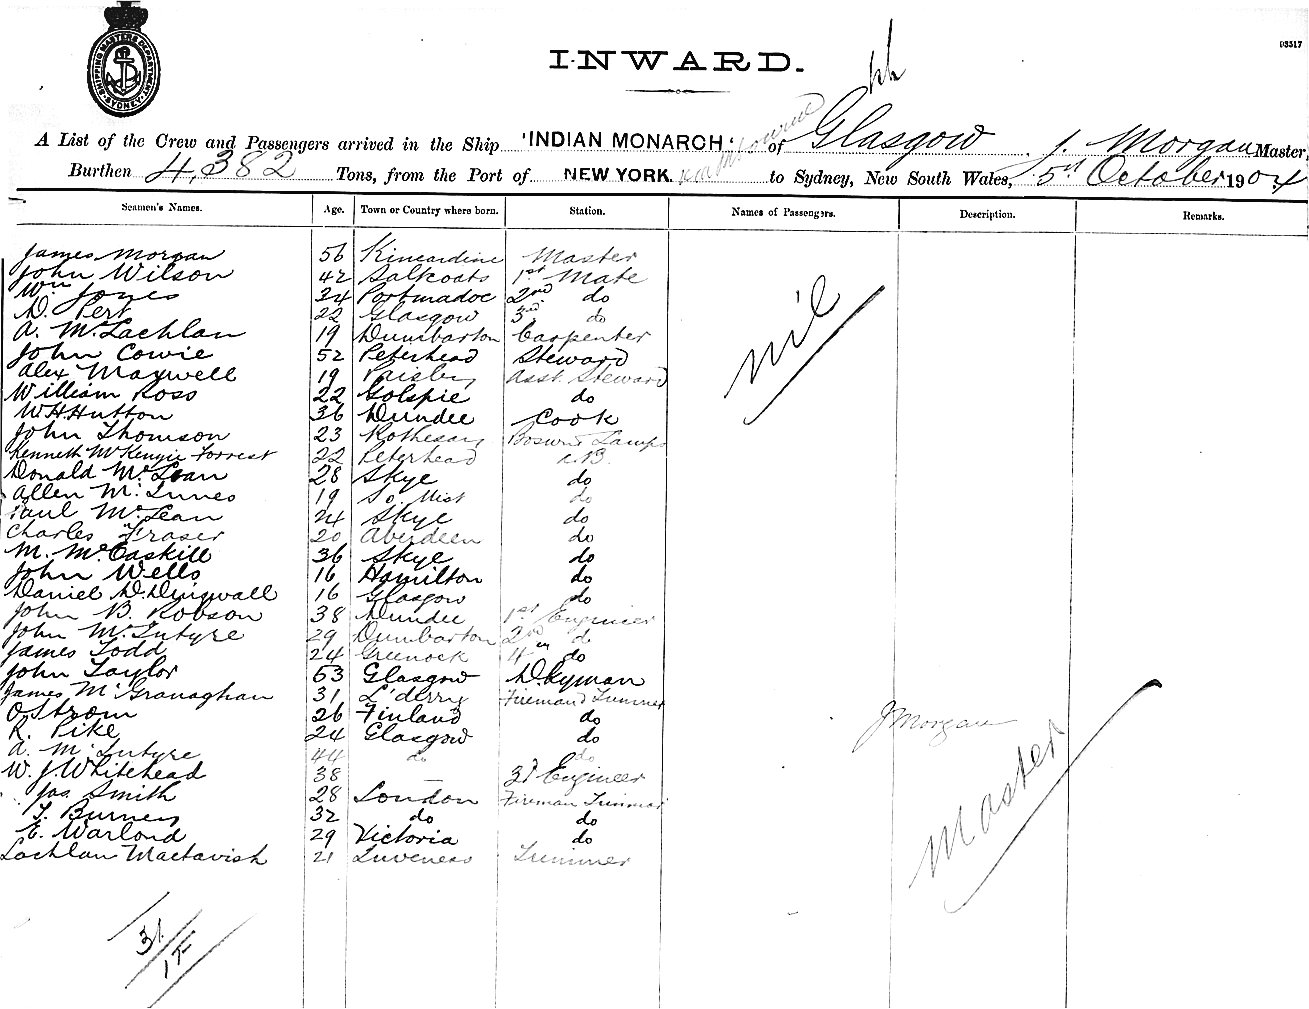 03517
SHIPPING MASTERS DEPARTMENT SYDNEY
INWARD.
A List of the Crew and Passengers arrived in the Ship 'INDIAN MONARCH' of Glasgow J. Morgan Master,
Burthen 4,382 Tons, from the Port of NEW YORK. via Melbourne to Sydney, New South Wales, 5th October 1904
Seamen's Names. Age. Town or Country where born. Station. Names of Passengers. Description. Remarks.
James Morgan 56 Kincardine Master
John Wilson 42 Saltcoats 1st Mate
Wm Jones 34 Portmadoc 2nd do
D. Pert 22 Glasgow 3rd do
A. McLachlan 19 Dumbarton Carpenter
John Cowie 52 Peterhead Steward
Alex Maxwell 19 Paisley Asst. Steward
William Ross 22 Golspie do
W.H. Hutton 36 Dundee Cook
John Thomson 23 Rothesay Bosun & Lamps
Kenneth McKenzie Forrest 22 Peterhead A.B.
Donald McLean 28 Skye do
Allen McInnes 19 So. Uist do
Paul McLean 24 Skye do
Charles Fraser 20 Aberdeen do
M. McCaskill 36 Skye do
John Wells 16 Hamilton do
Daniel D. Dingwall 16 Glasgow do
John B. Robson 38 Dundee 1st Engineer
John McIntyre 29 Dumbarton 2nd do
James Todd 24 Greenock 4th do
John Taylor 53 Glasgow D.kyman
James McGranaghan 31 L'derry Fireman & Trimmer
O Strom 26 Finland do
R. Pike 24 Glasgow do
A. McIntyre 44 do do
W. J. Whitehead 38 — 3d Engineer
Jas. Smith 28 London Fireman Trimmer
T. Burney 32 do do
E. Warlond 29 Victoria do
Lachlan Mactavish 21 Inverness Trimmer
nil
J Morgan
Master
31